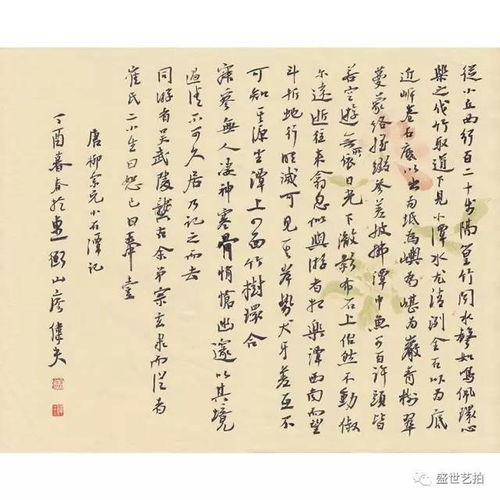 從小丘西行百二十步隔篁竹聞水聲如鳴佩環心
樂之伐竹取道下見小潭水尤清洌全石以為底
近岸卷石底以出為坻為嶼為嵁為巖青樹翠
蔓蒙絡搖綴參差披拂潭中魚可百許頭皆
若空遊無所依日光下澈影布石上佁然不動俶
尔遠逝往來翕忽似與游者相樂潭西南而望
斗折蛇行明滅可見其岸勢犬牙差互不
可知其源坐潭上四面竹樹環合
寂寥無人凄神寒骨悄愴幽邃以其境
過清不可久居乃記之而去
同游者吳武陵龔古余弟宗玄隸而從者
崔氏二小生曰恕己曰奉壹
唐柳宗元小石潭記
丁酉暮春於 衡山 偉夫
盛世艺拍